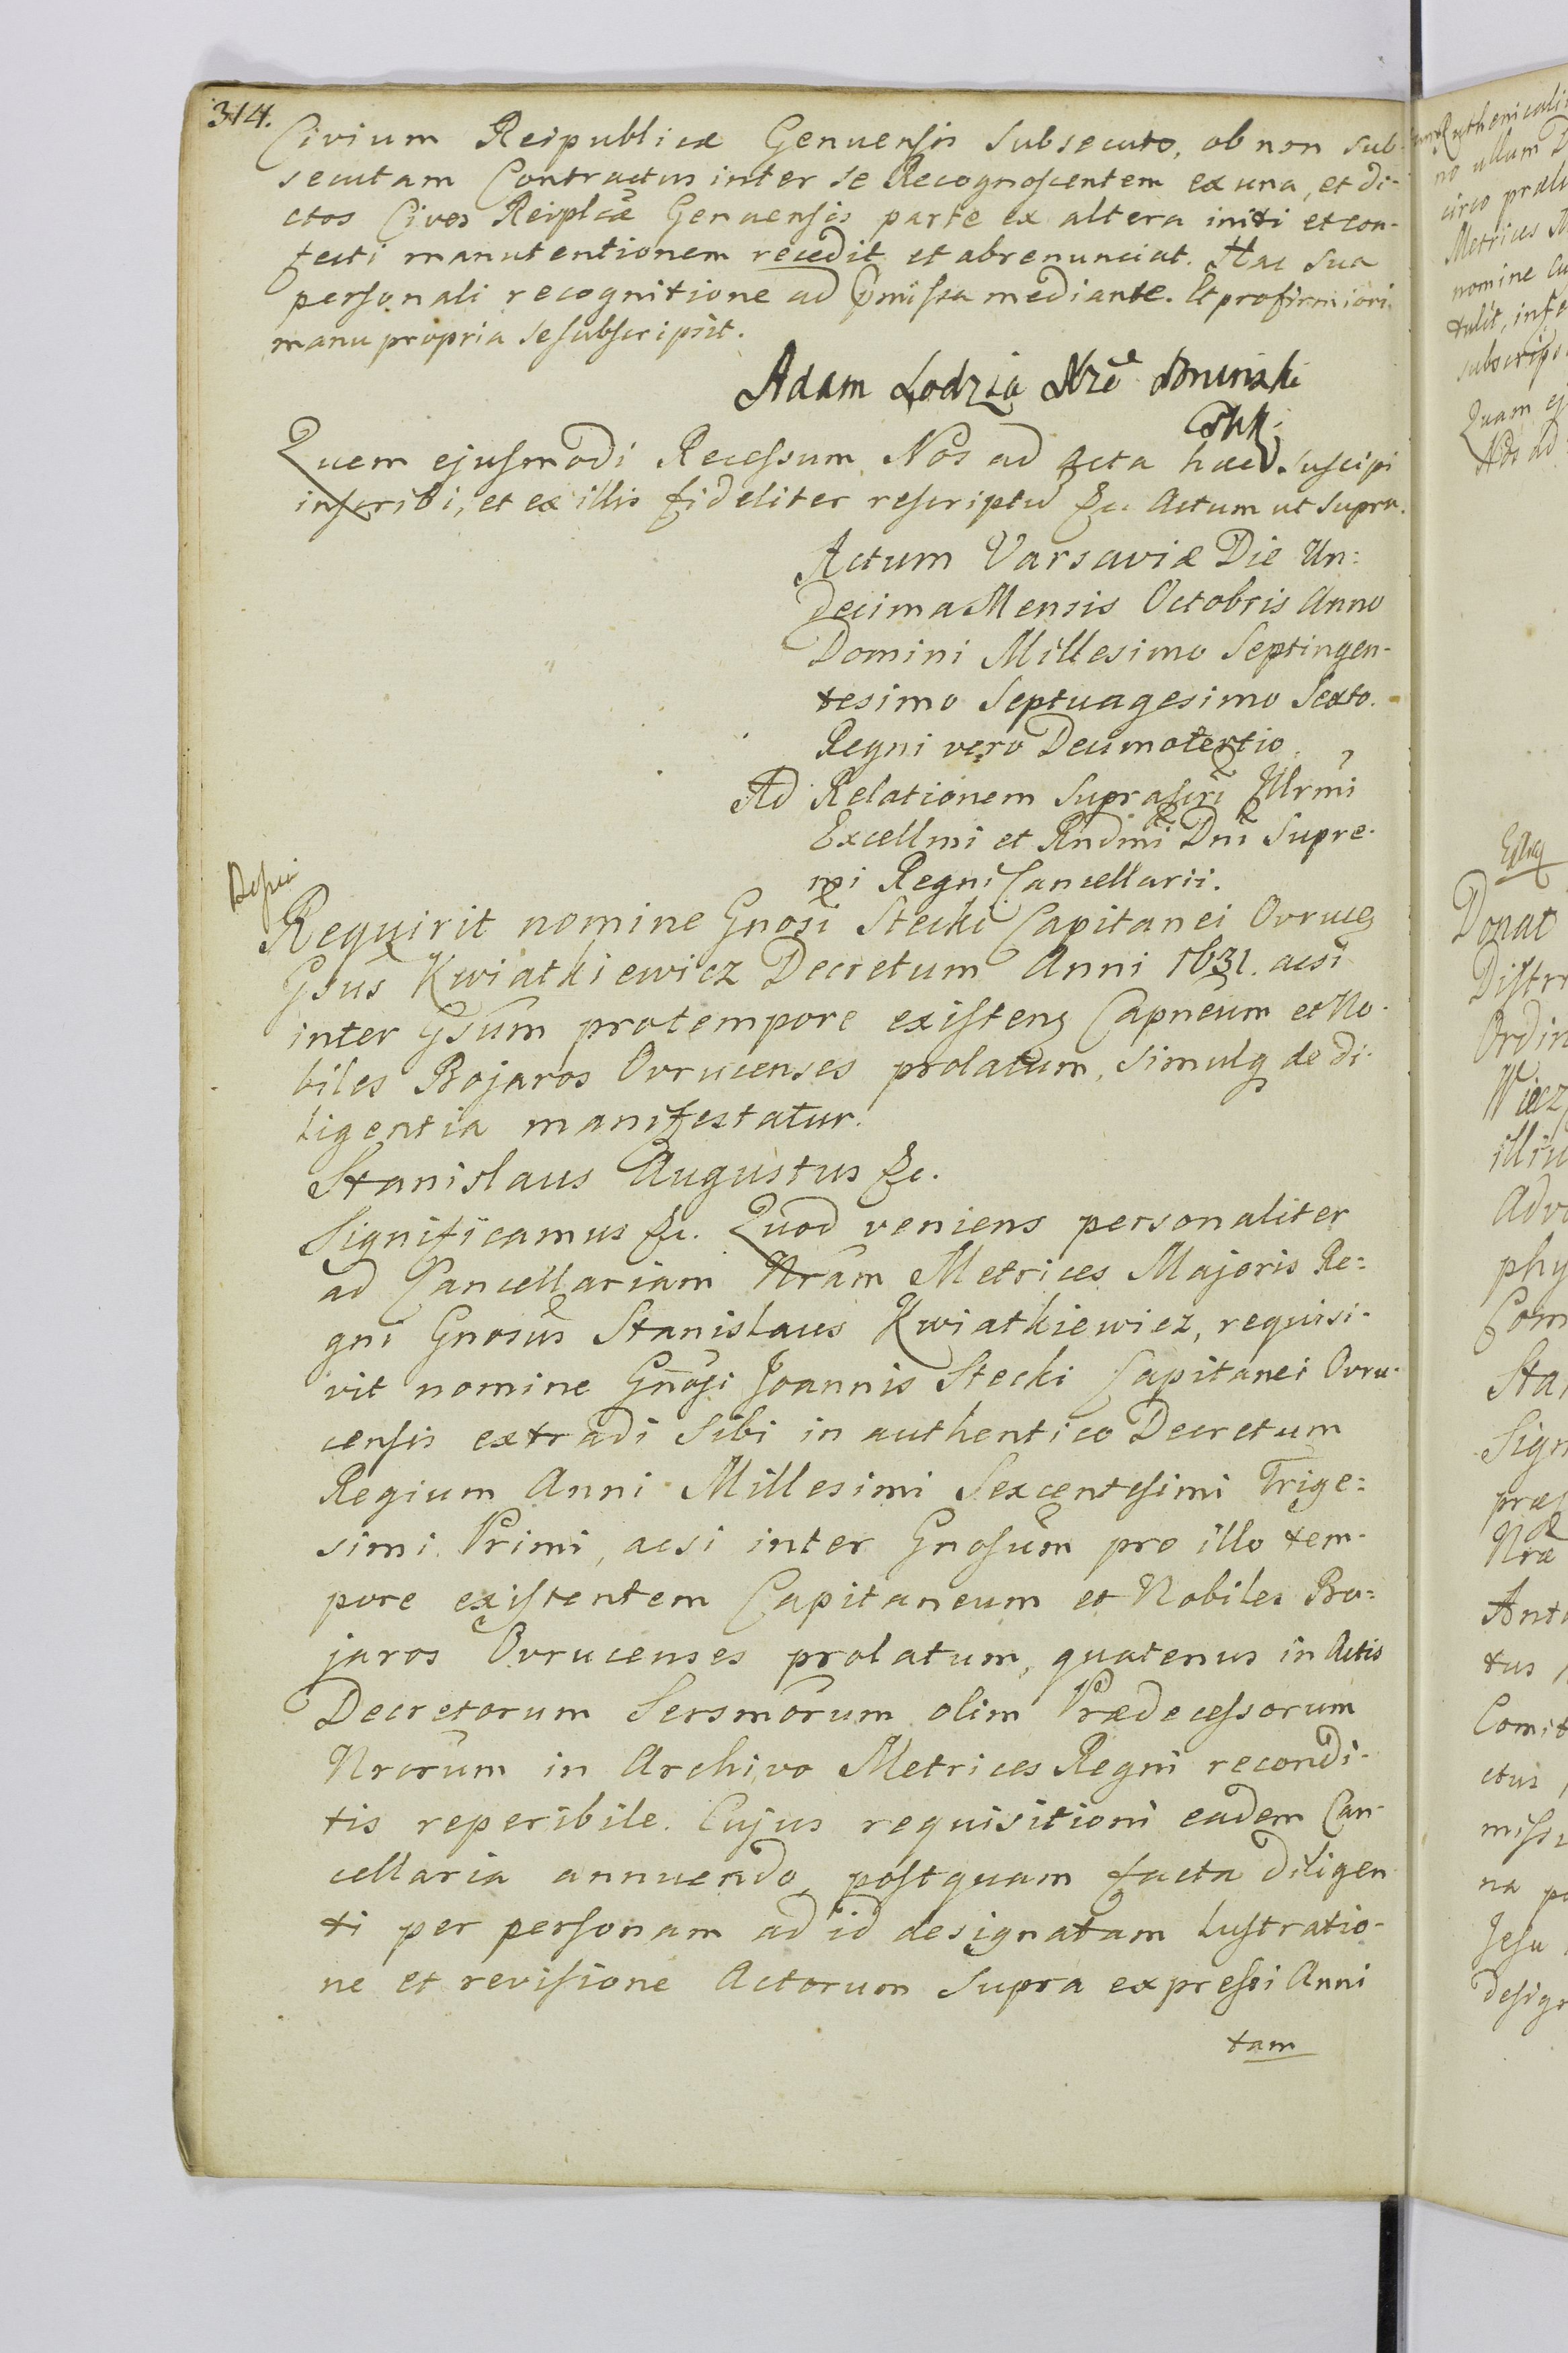 314.
Civium Reipublicæ Genuensis subsecuto, ob non sub-
secutam Contractus inter se Recognoscentem ex una, et di-
ctos Cives Reiplcæ Genuensis parte ex altera initi et con-
fecti manutentionem recedit et abrenunciat. Hac sua
personali recognitione ad pmissa mediante. Et pro firmiori
manu propria se subscripsit.
Adam Lodzia Xże Bninski
Quem ejusmodi Recessum Nos ad Acta hæc suscipi
inscribi, et ex illis fideliter rescriptu &c. Actum ut supra.
Actum Varsaviæ Die Un=
decima Mensis Octobris Anno
Domini Millesimo Septingen-
tesimo Septuagesimo Sexto.
Regni vero Decimo tertio.
Ad Relationem suprascri Illrmi
Excellmi et Rndmi Dni Supre-
mi Regni Cancellarii.
Requirit nomine Gnosi Stecki Capitanei Ovruceñ
Gsus Kwiatkiewicz Decretum Anni 1631. acsi
inter Gsum protempore existeng Capneum et No-
biles Bojaros Ovrucenses prolatum, simulq de di-
ligentia manifestatur.
Stanislaus Augustus &c.
Significamus &c. Quod veniens personaliter
ad Cancellariam Nram Metrices Majoris Re=
gni Gnosus Stanislaus Kwiatkiewicz, requisi-
vit nomine Gnosi Joannis Stecki Capitanei Ovru-
censis extradi sibi in authentico Decretum
Regium Anni Millesimi Sexcentesimi Trige=
simi Primi, acsi inter Gnosum pro illo tem-
pore existentem Capitaneum et Nobiles Bo=
jaros Ovrucenses prolatum, quatenus in Actis
Decretorum Sersmorum olim Prædecessorum
Nrorum in Archivo Metrices Regni recondi-
tis reperibile. Cujus requisitioni eadem Can-
cellaria annuendo, postquam facta diligen
ti per personam ad id designatam lustratio-
ne et revisione Actorum supra expressi Anni
tam